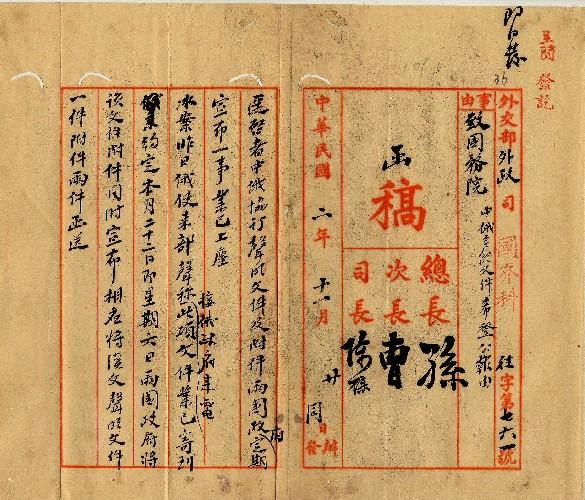 呈閱發訖
即日發
36
外交部外政司國界科 往字第七六一號
事由
致國務院
中俄聲明文件希登公報由
函稿
總長 孫
次長 曹
司長 陳
中華民國二年十一月廿 日辦
同日發
逕啓者中俄協訂聲明文件及附件兩國政府定期
宣布一事業已上塵
冰案昨日俄使來部聲稱接俄政府來電此項文件業已寄到
業約定本月二十二日即星期六日兩國政府將
該文件附件同時宣布相應將漢文聲明文件
一件附件兩件函送